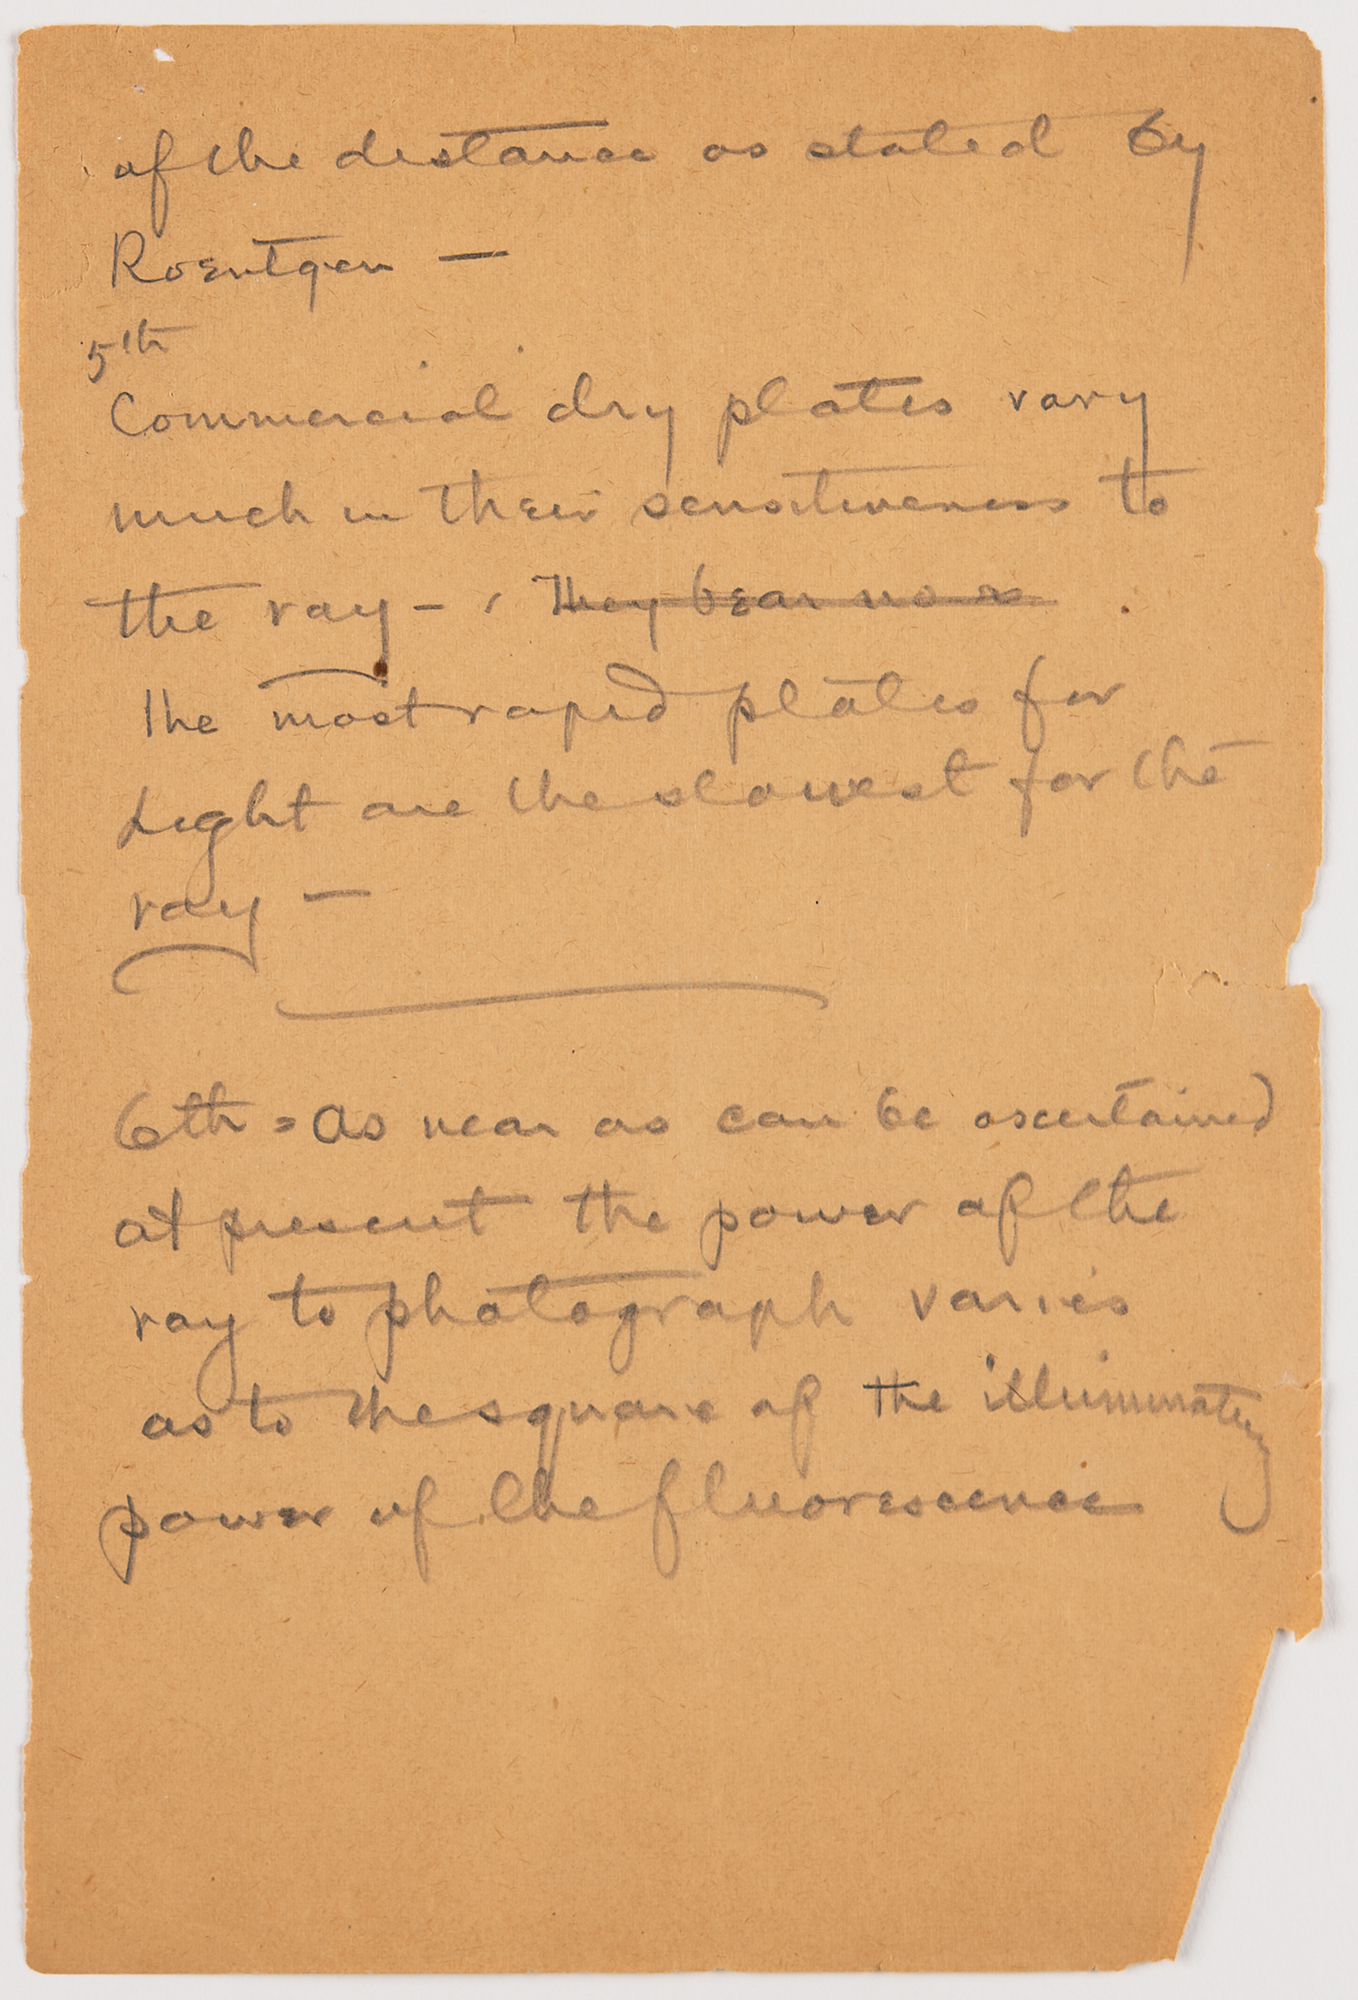 of the distance as stated by
Roentgen —
5th
Commercial dry plates vary
much in their sensitiveness to
the ray – , They bear no
the most rapid plates for
Light are the slowest for the
ray —
6th = as near as can be ascertained
at present the power of the
ray to photograph varies
as to the square of the illuminating
power of the fluorescence